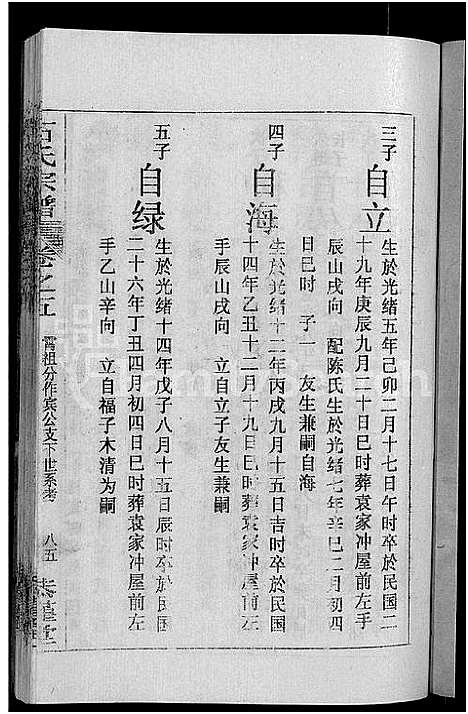 三子
自立
生於光绪五年己卯二月十七日午时卒於民国二
十九年庚辰九月二十日巳时葬袁家冲屋前左手
辰山戌向　配陈氏生於光绪七年辛巳二月初四
日巳时　子一　友生兼嗣自海
四子
自海
生於光绪十二年丙戌九月十五日吉时卒於民国
十四年乙丑十二月十九日巳时葬袁家冲屋前左
手辰山戌向　立自立子友生兼嗣
五子
自绿
生於光绪十四年戊子八月十五日辰时卒於民国
二十六年丁丑四月初四日巳时葬袁家冲屋前左
手乙山辛向　立自福子木清为嗣
石氏宗谱
卷之五
霄祖分作宾公支下世系考
八五
堂